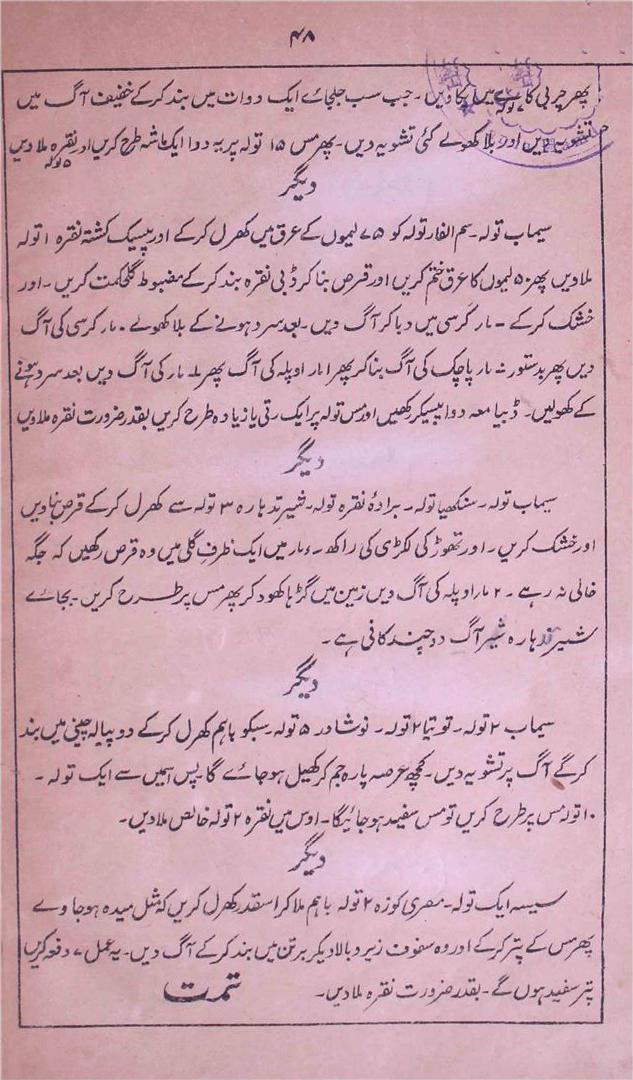 ۴۸
پھر چربی گاے میں پکاویں۔ جب سب جلجاے ایک دوات میں بند کرکے خفیف آگ میں
۷ تولہ
تشویہ دیں اور بلا کھولے کئی تشویہ دیں۔ پھر مس ۱۵ تولہ پر یہ دوا ایک ماشہ طرح کریں اور نقرہ ملا دیں
۵ تولہ
دیگر
سیماب تولہ۔ سم الفار تولہ کو ۷۵ لیموں کے عرق میں کھرل کرکے اور پیسیک کشتہ نقرہ ۱ تولہ
ملاویں پھر ۵۰ لیموں کا عرق ختم کریں اور قرص بنا کر ڈبی نقرہ بند کرکے مضبوط گلحکمت کریں۔ اور
خشک کرکے ۔ مار کرسی میں دبا کر آگ دیں۔ بعد سرد ہونے کے بلا کھولے ۔ مار کرسی کی آگ
دیں پھر بدستور مار پاچک کی آگ بنا کر پھر ا مار اوپلہ کی آگ پھر مار کی آگ دیں بعد سرد ہونے
کے کھولیں۔ ڈبیا معہ دوا پیسکر رکھیں اور مس تولہ پر ایک رتی یا زیادہ طرح کریں بقدر ضرورت نقرہ ملاویں
دیگر
سیماب تولہ۔ سنکھیا تولہ۔ برادۂ نقرہ تولہ۔ شیر تدہارہ ۳ تولہ سے کھرل کرکے قرص بناویں
اور خشک کریں۔ اور تھوڑ کی لکڑی کی راکھ۔ مار میں ایک ظرف گلی میں وہ قرص رکھیں کہ جگہ
خالی نہ رہے۔ ۲ مار اوپلہ کی آگ دیں زمین میں گڑہا کھود کر پھر مس پر طرح کریں۔ بجاے
شیر تدہارہ شیر آگ دوچند کافی ہے۔
دیگر
سیماب ۲ تولہ۔ توتیا ۲ تولہ۔ نوشادر ۵ تولہ۔ سبکو باہم کھرل کرکے دو پیالہ چینی میں بند
کرگے آگ پر تشویہ دیں۔ کچھ عرصہ پارہ جم کر کھیل ہوجاے گا پس اسمیں سے ایک تولہ۔
۱۰ تولہ مس پر طرح کریں تو مس سفید ہوجائیگا۔ اوس میں نقرہ ۲ تولہ خالص ملادیں۔
دیگر
سیسہ ایک تولہ۔ مصری کوزہ ۲ تولہ باہم ملا کر اسقدر کھرل کریں کہ مثل میدہ ہوجاوے
پھر مس کے پتر کرکے اور وہ سفوف زیر و بالا دیکر برتن میں بند کرکے آگ دیں۔ یہ عمل ۷ دفعہ کریں
پتر سفید ہوں گے۔ بقدر ضرورت نقرہ ملادیں۔ تمت